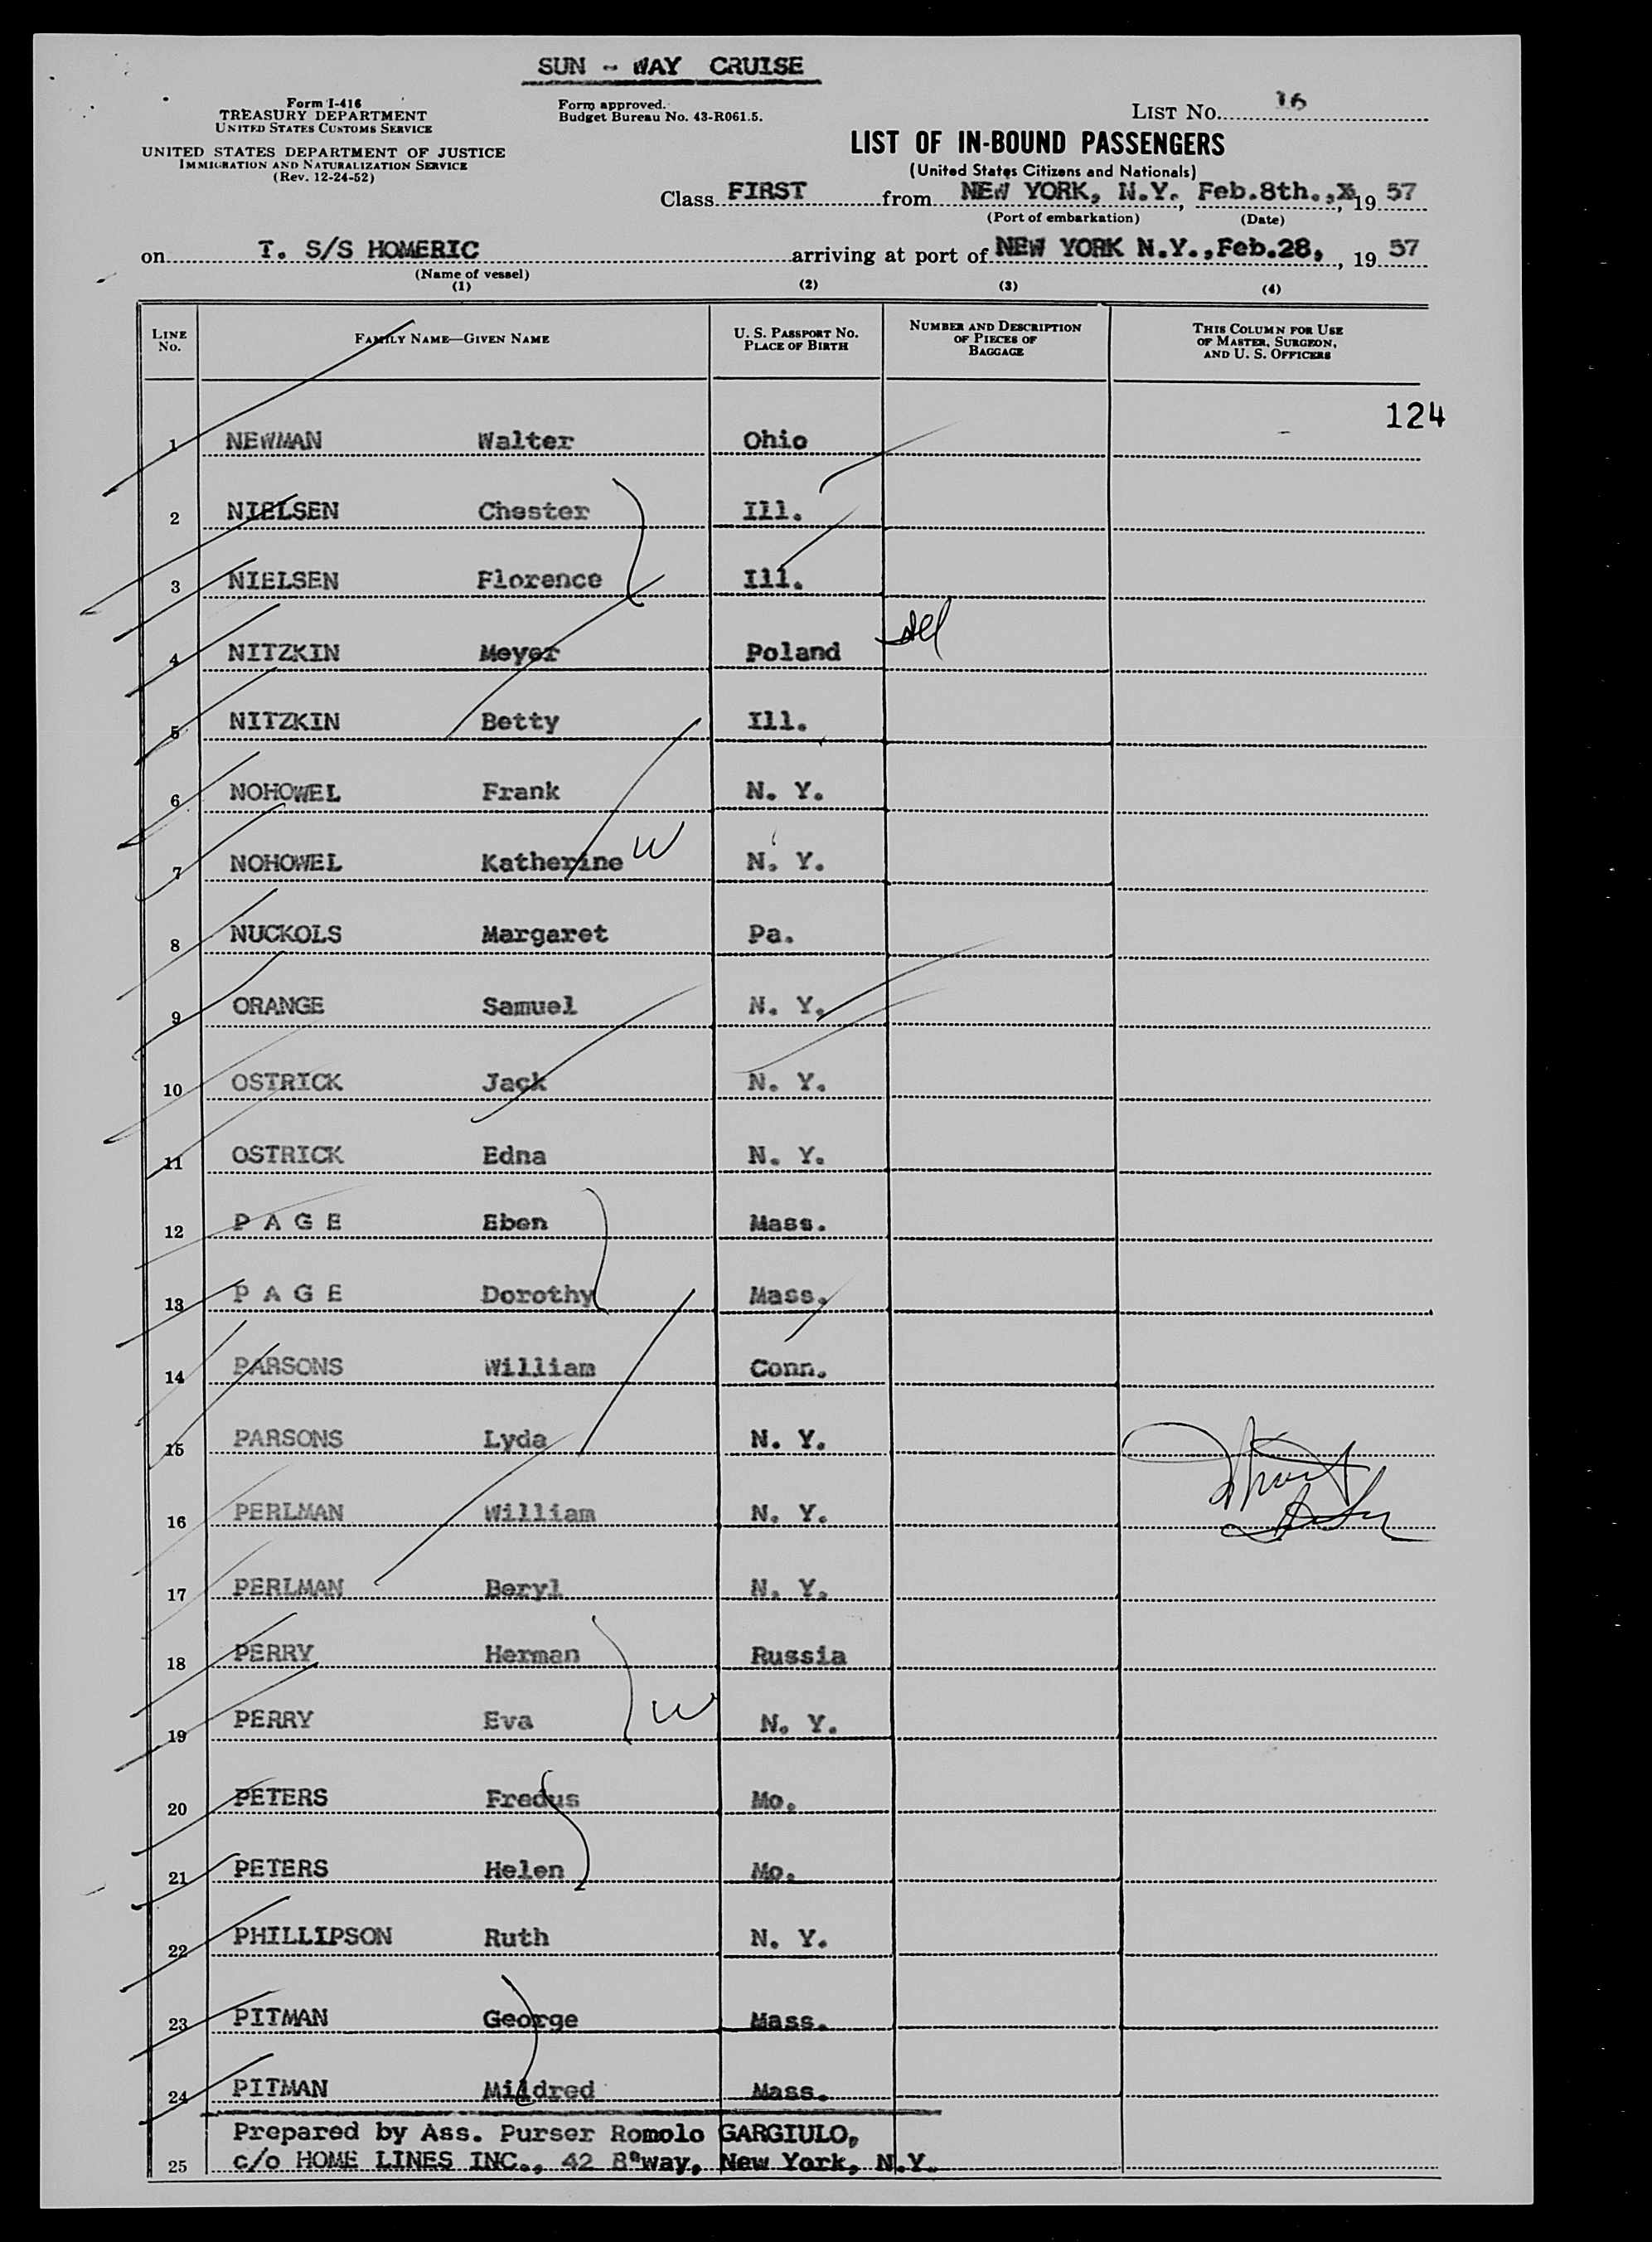 SUN - WAY CRUISE
Form I-416
TREASURY DEPARTMENT
UNITED STATES CUSTOMS SERVICE
UNITED STATES DEPARTMENT OF JUSTICE
IMMIGRATION AND NATURALIZATION SERVICE
(Rev. 12-24-52)
Form approved.
Budget Bureau No. 43-R061.5.
LIST No. 16
LIST OF IN-BOUND PASSENGERS
(United States Citizens and Nationals)
Class FIRST from NEW YORK, N.Y., Feb.8th., 19 57
(Port of embarkation) (Date)
on T. S/S HOMERIC arriving at port of NEW YORK N.Y., Feb.28, , 19 57
(Name of vessel)
(1) (2) (3) (4)
LINE No. FAMILY NAME—GIVEN NAME U. S. PASSPORT No. PLACE OF BIRTH NUMBER AND DESCRIPTION OF PIECES OF BAGGAGE THIS COLUMN FOR USE OF MASTER, SURGEON, AND U. S. OFFICERS
124
1 NEWMAN Walter Ohio
2 NIELSEN Chester Ill.
3 NIELSEN Florence Ill.
4 NITZKIN Meyer Poland
5 NITZKIN Betty Ill.
6 NOHOWEL Frank N. Y.
7 NOHOWEL Katherine W N. Y.
8 NUCKOLS Margaret Pa.
9 ORANGE Samuel N. Y.
10 OSTRICK Jack N. Y.
11 OSTRICK Edna N. Y.
12 P A G E Eben Mass.
13 P A G E Dorothy Mass.
14 PARSONS William Conn.
15 PARSONS Lyda N. Y.
16 PERLMAN William N. Y.
17 PERLMAN Beryl N. Y.
18 PERRY Herman Russia
19 PERRY Eva W N. Y.
20 PETERS Fredus Mo.
21 PETERS Helen Mo.
22 PHILLIPSON Ruth N. Y.
23 PITMAN George Mass.
24 PITMAN Mildred Mass.
Prepared by Ass. Purser Romolo GARGIULO,
25 c/o HOME LINES INC., 42 B'way, New York, N.Y.